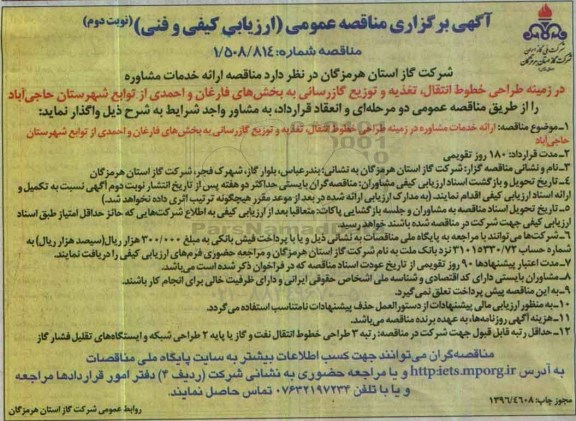 آگهی برگزاری مناقصه عمومی (ارزیابی کیفی و فنی) (نوبت دوم)
مناقصه شماره: ۱/۵۰۸/۸۱۴
شرکت گاز استان هرمزگان در نظر دارد مناقصه ارائه خدمات مشاوره
در زمینه طراحی خطوط انتقال، تغذیه و توزیع گازرسانی به بخش‌های فارغان و احمدی از توابع شهرستان حاجی‌آباد
را از طریق مناقصه عمومی دو مرحله‌ای و انعقاد قرارداد، به مشاور واجد شرایط به شرح ذیل واگذار نماید:
۱-موضوع مناقصه: ارائه خدمات مشاوره در زمینه طراحی خطوط انتقال، تغذیه و توزیع گازرسانی به بخش‌های فارغان و احمدی از توابع شهرستان
حاجی‌آباد
۲-مدت قرارداد: ۱۸۰ روز تقویمی
۳-نام و نشانی مناقصه گزار: شرکت گاز استان هرمزگان به نشانی: بندرعباس، بلوار گاز، شهرک فجر، شرکت گاز استان هرمزگان
۴-تاریخ تحویل و بازگشت اسناد ارزیابی کیفی مشاوران: مناقصه‌گران بایستی حداکثر دو هفته پس از تاریخ انتشار نوبت دوم آگهی نسبت به تکمیل و
ارائه اسناد ارزیابی کیفی اقدام نمایند. (به مدارک ارزیابی ارائه شده در بعد از موعد مقرر هیچگونه ترتیب اثری داده نخواهد شد.)
۵-تاریخ تحویل اسناد مناقصه به مشاوران و جلسه بازگشایی پاکات: متعاقبا بعد از ارزیابی کیفی به اطلاع شرکت‌هایی که حائز حداقل امتیاز طبق اسناد
ارزیابی کیفی جهت شرکت در مناقصه شده باشند خواهد رسید.
۶-شرکت‌ها می‌توانند با مراجعه به پایگاه ملی مناقصات به نشانی ذیل و یا با پرداخت فیش بانکی به مبلغ ۳۰۰/۰۰۰ هزار ریال(سیصد هزار ریال) به
شماره حساب ۳۱۰۱۵۳۳۰/۷۲ نزد بانک ملت به نام شرکت گاز استان هرمزگان و مراجعه حضوری فرم‌های ارزیابی کیفی را دریافت نمایند.
۷-مدت اعتبار پیشنهادها ۹۰ روز تقویمی از تاریخ عودت اسناد مناقصه که در فراخوان ذکر شده است می‌باشد.
۸-مشاوران بایستی دارای کد اقتصادی و شناسه ملی اشخاص حقوقی ایرانی و دارای ظرفیت خالی برای انجام کار باشند.
۹-به این مناقصه پیش پرداخت تعلق نمی‌گیرد.
۱۰-به منظور ارزیابی مالی پیشنهادات از دستورالعمل حذف پیشنهادات نامتناسب استفاده می‌گردد.
۱۱-هزینه آگهی روزنامه‌ها، به عهده برنده مناقصه می‌باشد.
۱۲-حداقل رتبه قابل قبول جهت شرکت در مناقصه: رتبه ۳ طراحی خطوط انتقال نفت و گاز یا پایه ۲ طراحی شبکه و ایستگاه‌های تقلیل فشار گاز
مناقصه‌گران می‌توانند جهت کسب اطلاعات بیشتر به سایت پایگاه ملی مناقصات
به آدرس http:iets.mporg.ir و یا مراجعه حضوری به نشانی شرکت (ردیف ۴) دفتر امور قراردادها مراجعه
و یا با تلفن ۰۷۶۳۲۱۹۷۲۳۴ تماس حاصل نمایند.
مجوز چاپ: ۱۳۹۶/۴۶۰۸
روابط عمومی شرکت گاز استان هرمزگان